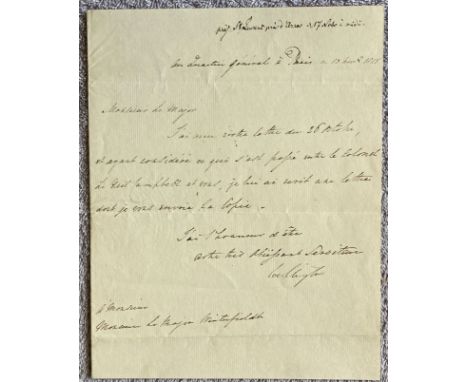 au quartier général à Paris ce
Monsieur le Major
J'ai reçu votre lettre du 26 Octobre,
et ayant considéré ce qui s'est passé entre le Colonel
Sir Neil Campbell et vous, je lui ai écrit une lettre
dont je vous envoie la Copie.
J'ai l'honneur d'être
votre très obéissant Serviteur
Wellington
à Monsieur
Monsieur le Major